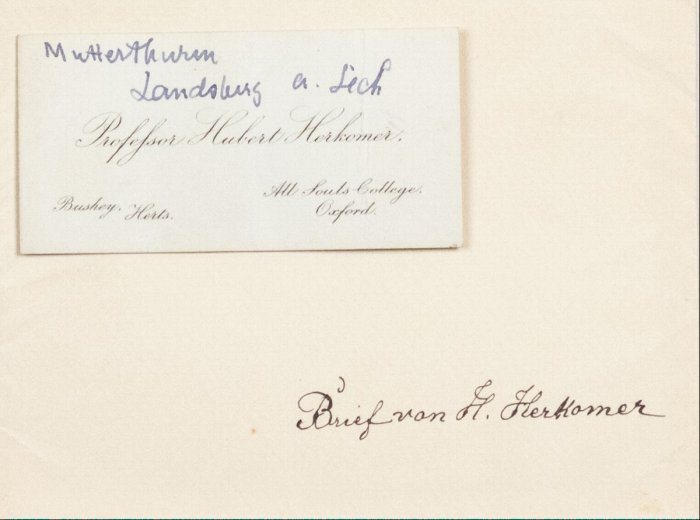 Mutterthurm
Landsberg a. Lech
Professor Hubert Herkomer.
All Souls College.
Bushey. Herts.
Oxford.
Brief von H. Herkomer